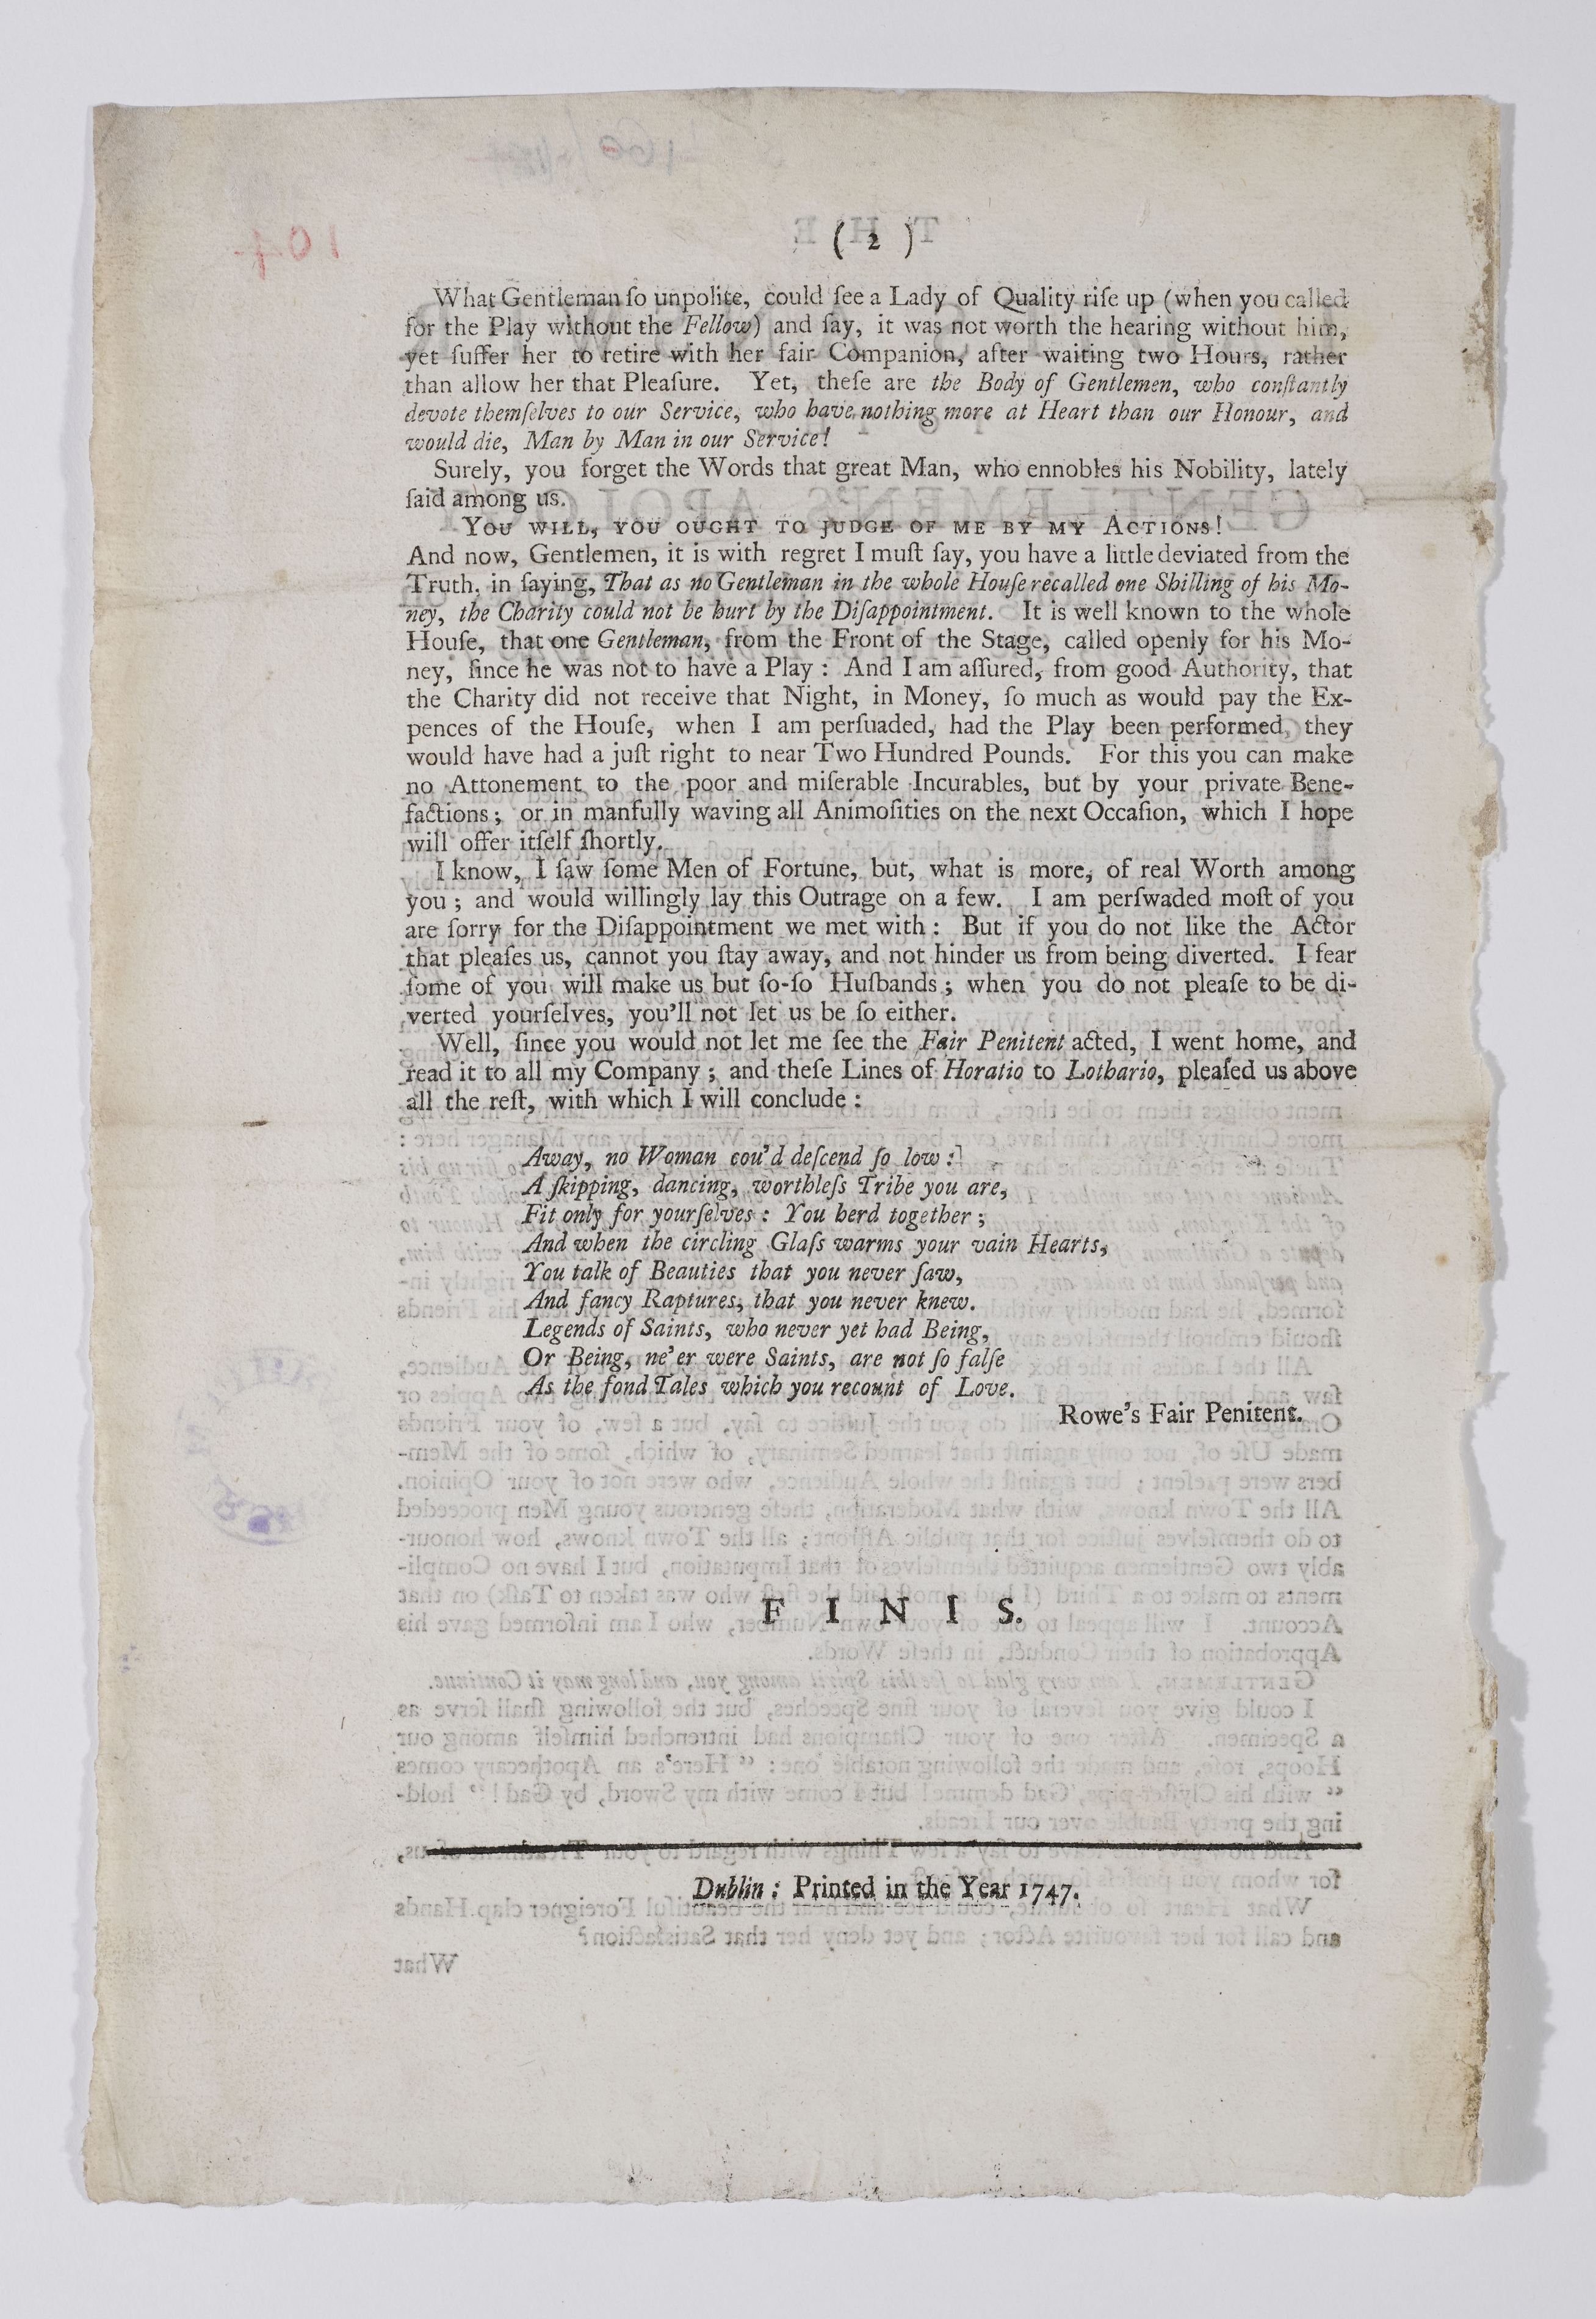 ( 2 )
What Gentleman ſo unpolite, could ſee a Lady of Quality riſe up (when you called
for the Play without the Fellow) and ſay, it was not worth the hearing without him,
yet ſuffer her to retire with her fair Companion, after waiting two Hours, rather
than allow her that Pleaſure. Yet, theſe are the Body of Gentlemen, who conſtantly
devote themſelves to our Service, who have nothing more at Heart than our Honour, and
would die, Man by Man in our Service!
Surely, you forget the Words that great Man, who ennobles his Nobility, lately
ſaid among us.
YOU WILL, YOU OUGHT TO JUDGE OF ME BY MY ACTIONS!
And now, Gentlemen, it is with regret I muſt ſay, you have a little deviated from the
Truth, in ſaying, That as no Gentleman in the whole Houſe recalled one Shilling of his Mo-
ney, the Charity could not be hurt by the Diſappointment. It is well known to the whole
Houſe, that one Gentleman, from the Front of the Stage, called openly for his Mo-
ney, ſince he was not to have a Play : And I am aſſured, from good Authority, that
the Charity did not receive that Night, in Money, ſo much as would pay the Ex-
pences of the Houſe, when I am perſuaded, had the Play been performed, they
would have had a juſt right to near Two Hundred Pounds. For this you can make
no Attonement to the poor and miſerable Incurables, but by your private Bene-
factions ; or in manfully waving all Animoſities on the next Occaſion, which I hope
will offer itſelf ſhortly.
I know, I ſaw ſome Men of Fortune, but, what is more, of real Worth among
you ; and would willingly lay this Outrage on a few. I am perſwaded moſt of you
are ſorry for the Diſappointment we met with : But if you do not like the Actor
that pleaſes us, cannot you ſtay away, and not hinder us from being diverted. I fear
ſome of you will make us but ſo-ſo Huſbands ; when you do not pleaſe to be di-
verted yourſelves, you'll not let us be ſo either.
Well, ſince you would not let me ſee the Fair Penitent acted, I went home, and
read it to all my Company ; and theſe Lines of Horatio to Lothario, pleaſed us above
all the reſt, with which I will conclude :
Away, no Woman cou'd deſcend ſo low :
A ſkipping, dancing, worthleſs Tribe you are,
Fit only for yourſelves : You herd together ;
And when the circling Glaſs warms your vain Hearts,
You talk of Beauties that you never ſaw,
And fancy Raptures, that you never knew.
Legends of Saints, who never yet had Being,
Or Being, ne'er were Saints, are not ſo falſe
As the fond Tales which you recount of Love.
Rowe's Fair Penitent.
F I N I S.
Dublin : Printed in the Year 1747.